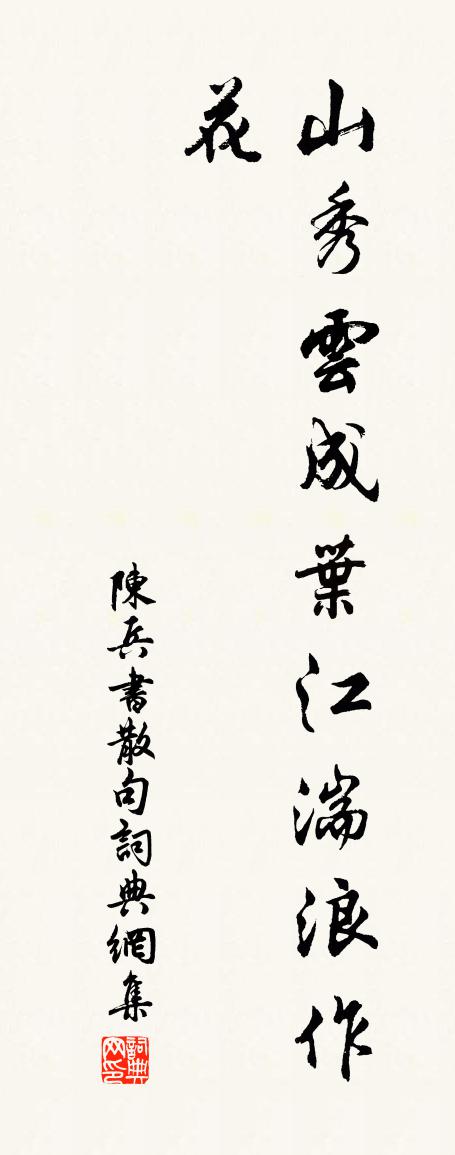 山秀雲成葉江湍浪作
花
陳兵書散句詞典網集
詞典
网印